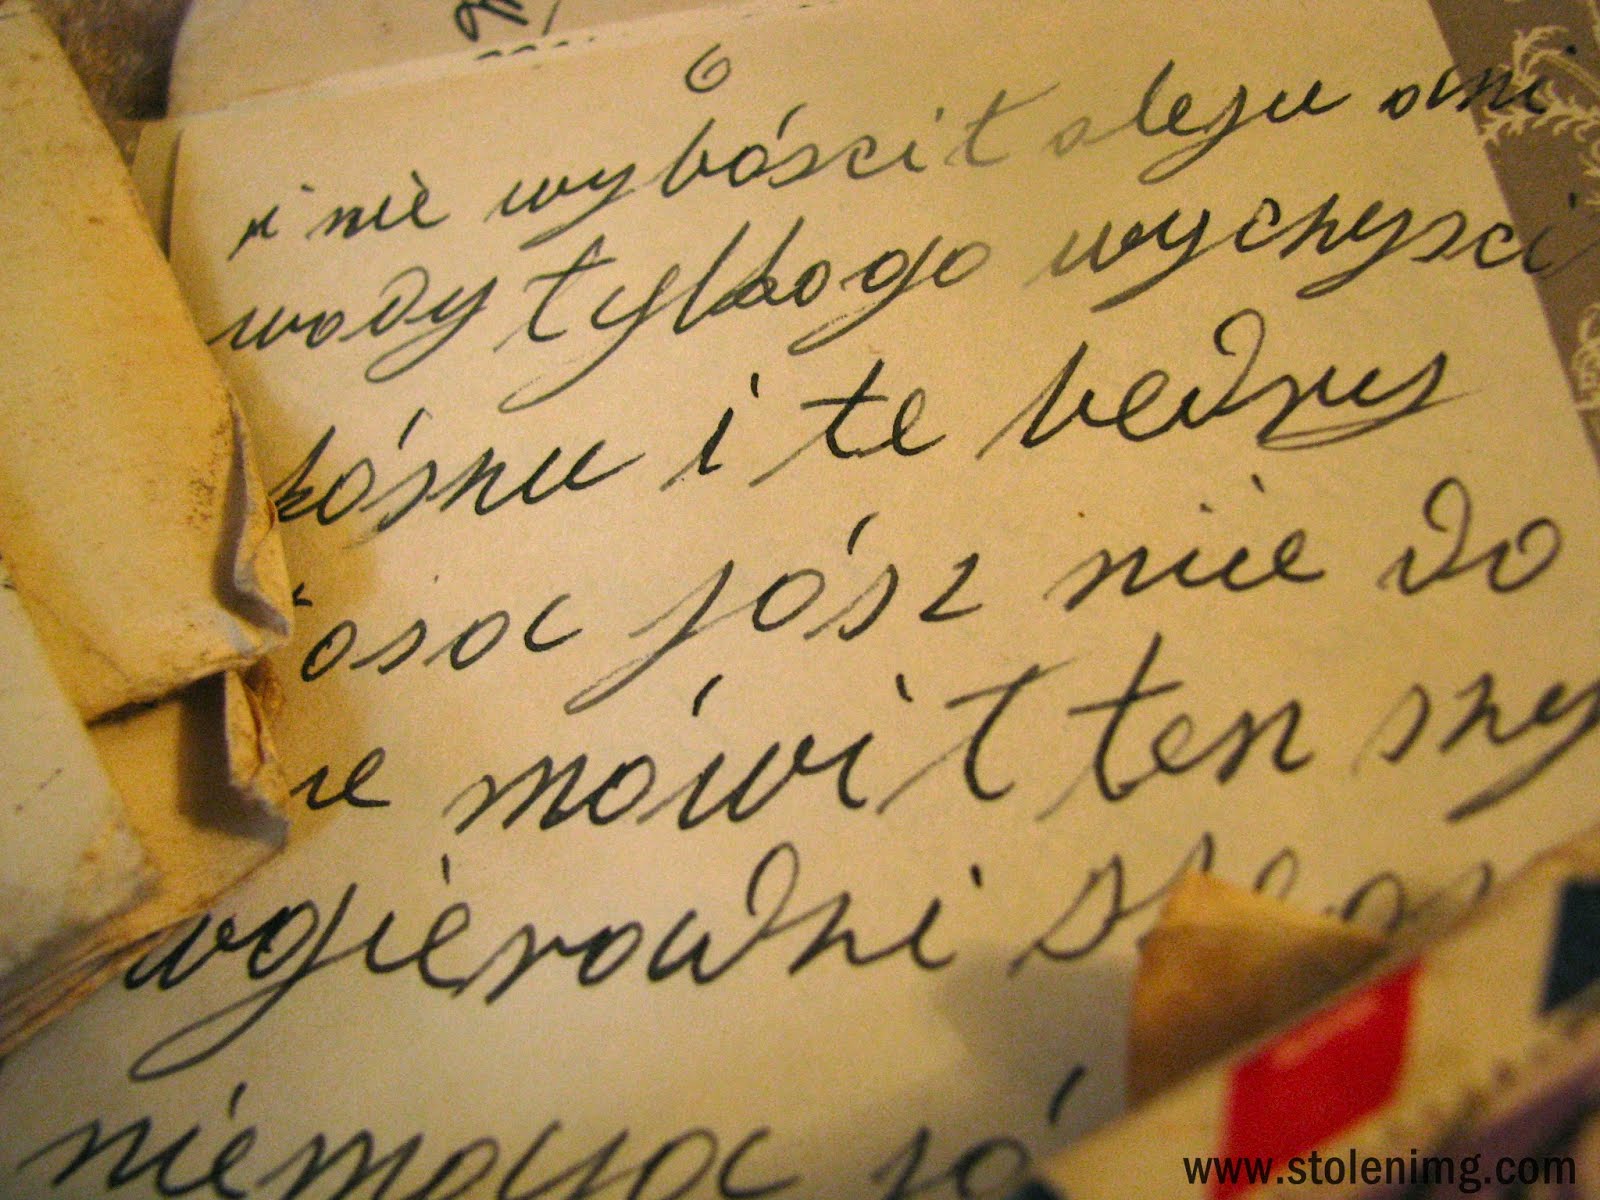 6
i nie wybóścit oleju ani
wody tylkogo wychyści
kósnu i te bedzy
osoc jósz nie do
ie mówit ten szy
wgierowdni
niemoyoc jó
www.stolenimg.com